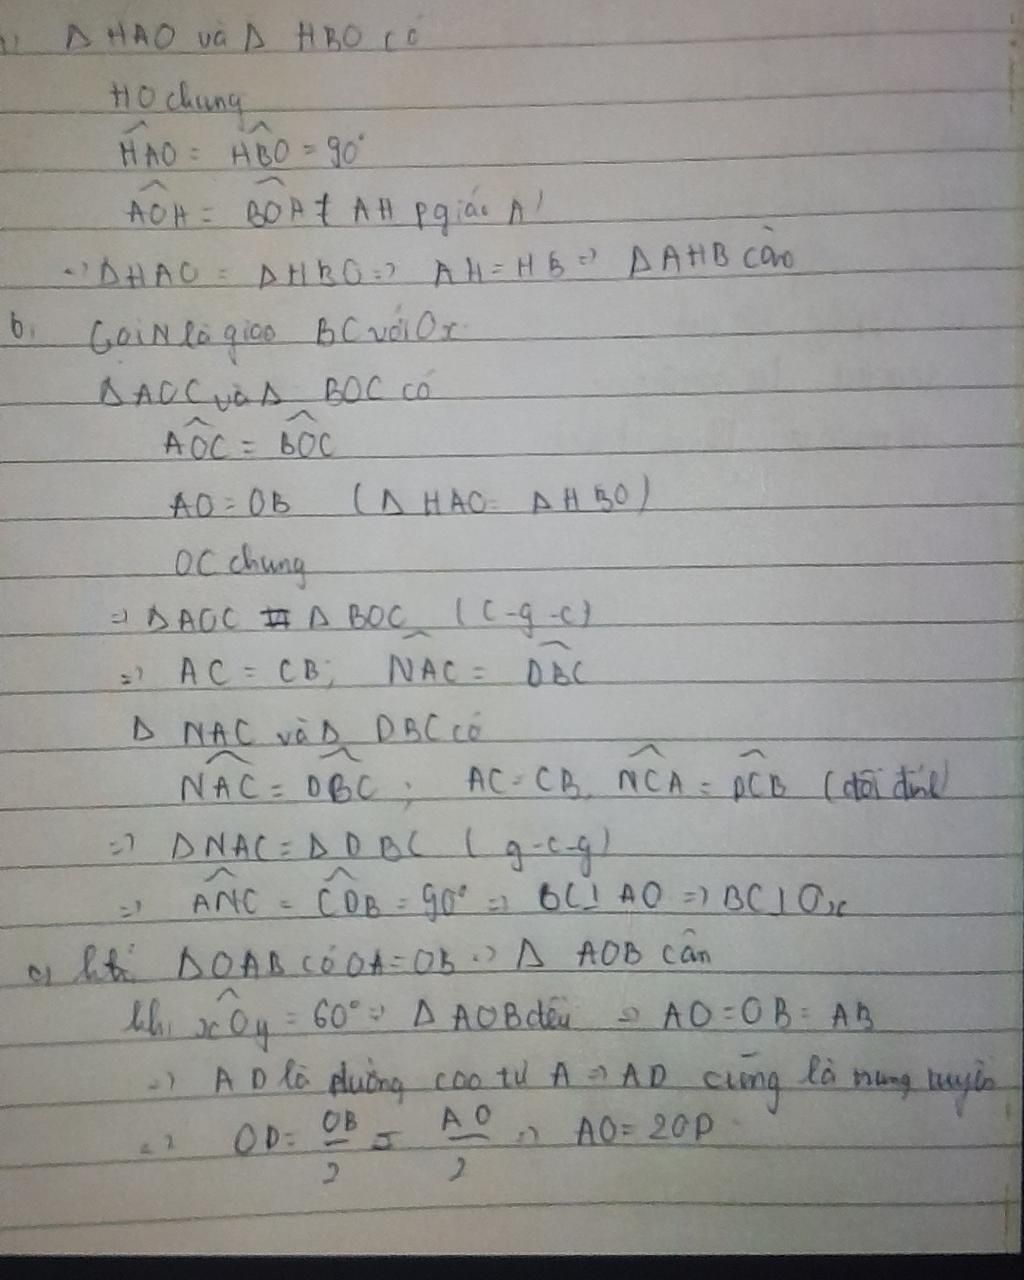 Δ HAO và Δ HBO có
HO chung
HAO = HBO = 90°
AOH = BOH { AH pgiác A }
=> ΔHAO = ΔHBO => AH = HB => ΔAHB cân
b, Gọi N là giao BC với Ox
ΔAOC và Δ BOC có
AOC = BOC
AO = OB ( Δ HAO = Δ HBO )
OC chung
=> ΔAOC = Δ BOC (c-g-c)
=> AC = CB; NAC = DBC
Δ NAC và Δ DBC có
NAC = DBC ; AC = CB, NCA = DCB (đối đỉnh)
=> ΔNAC = Δ DBC ( g-c-g)
=> ANC = CDB = 90° => BC ⊥ AO => BC ⊥ Ox
c, ΔOAB có OA = OB => Δ AOB cân
khi xOy = 60° => Δ AOB đều => AO = OB = AB
=> AD là đường cao từ A => AD cũng là trung tuyến
=> OD = OB/2 = AO/2 => AO = 2OD